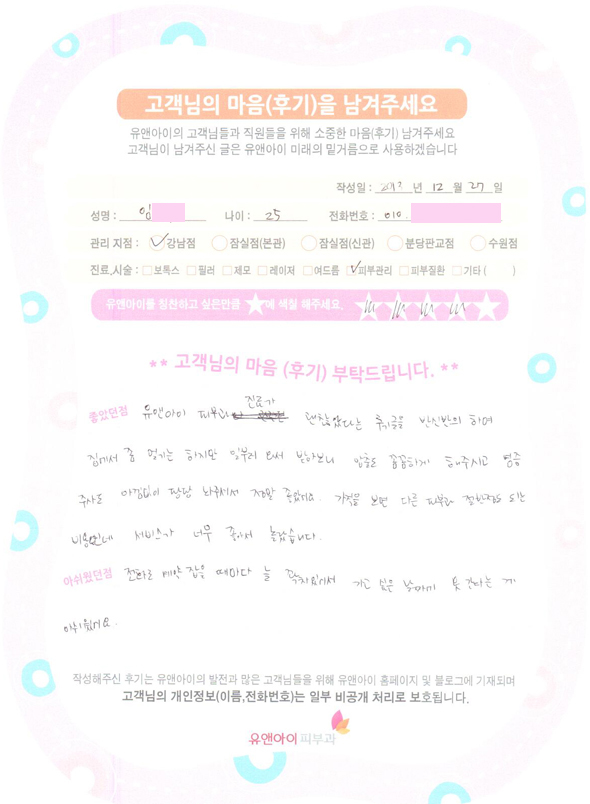 고객님의 마음(후기)을 남겨주세요
유앤아이의 고객님들과 직원들을 위해 소중한 마음(후기) 남겨주세요
고객님이 남겨주신 글은 유앤아이 미래의 밑거름으로 사용하겠습니다
작성일 : 2013 년 12 월 27 일
성명 : 임 나이 : 25 전화번호 : 010.
관리 지점 : 강남점 잠실점(본관) 잠실점(신관) 분당판교점 수원점
진료,시술 : 보톡스 필러 제모 레이저 여드름 피부관리 피부질환 기타 ( )
유앤아이를 칭찬하고 싶은만큼 에 색칠 해주세요.
** 고객님의 마음 (후기) 부탁드립니다. **
진료가
좋았던점 유앤아이 피부과 괜찮았다는 후기글을 반신반의 하여
집에서 좀 멀기는 하지만 일부러 와서 받아보니 압출도 꼼꼼하게 해주시고 염증
주사도 아낌없이 팡팡 놔주셔서 정말 좋았어요. 가격을 보면 다른 피부과 절반정도
비용인데 서비스가 너무 좋아서 놀랐습니다.
아쉬웠던점 전화로 예약 잡을 때마다 늘 꽉차있어서 가고 싶은 날마다 못 간다는 게
아쉬웠어요.
작성해주신 후기는 유앤아이의 발전과 많은 고객님들을 위해 유앤아이 홈페이지 및 블로그에 기재되며
고객님의 개인정보(이름,전화번호)는 일부 비공개 처리로 보호됩니다.
유앤아이 피부과